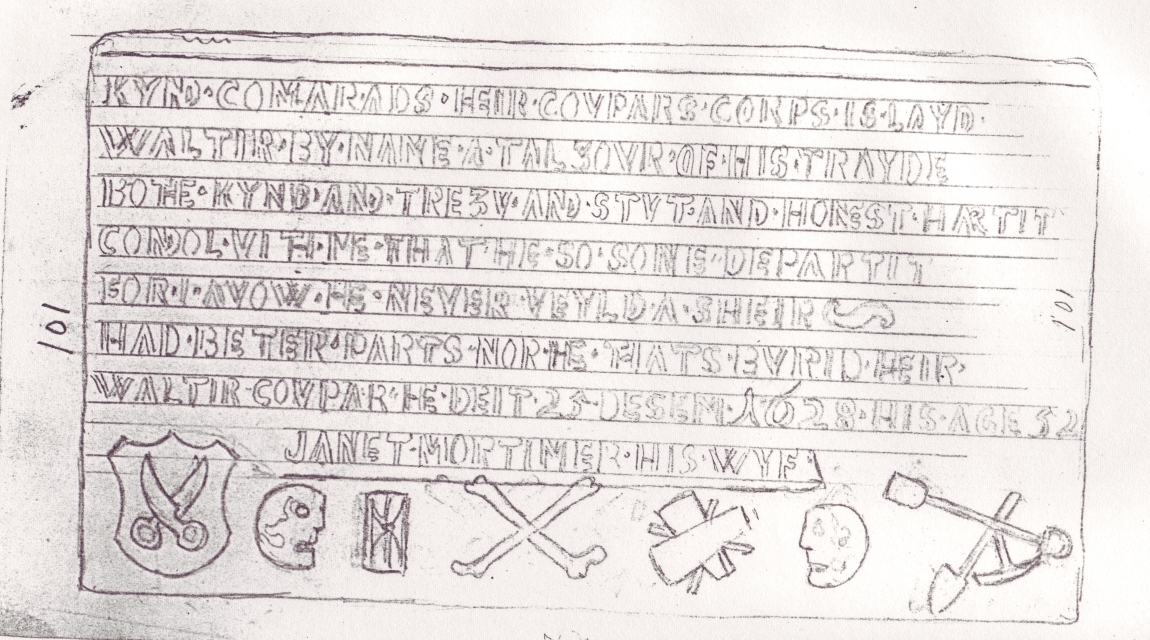 KYND·COMARADS·HEIR·COVPARS·CORPS·IS·LAYD·
WALTIR·BY·NAME·A·TALӠOVR·OF·HIS·TRAYDE
BOTHE·KYND·AND·TREӠV·AND·STVT·AND·HONEST·HARTIT
CONDOL·VITH·ME·THAT·HE·SO·SONE·DEPARTIT
FOR·I·AVOW·HE·NEVER·VEYLD·A·SHEIR
HAD·BETER·PARTS·NOR·HE·THATS·BVRID·HEIR·
WALTIR·COVPAR·HE·DEIT·25·DESEM·1628·HIS·AGE 32
JANET·MORTIMER·HIS·WYF·
101
101